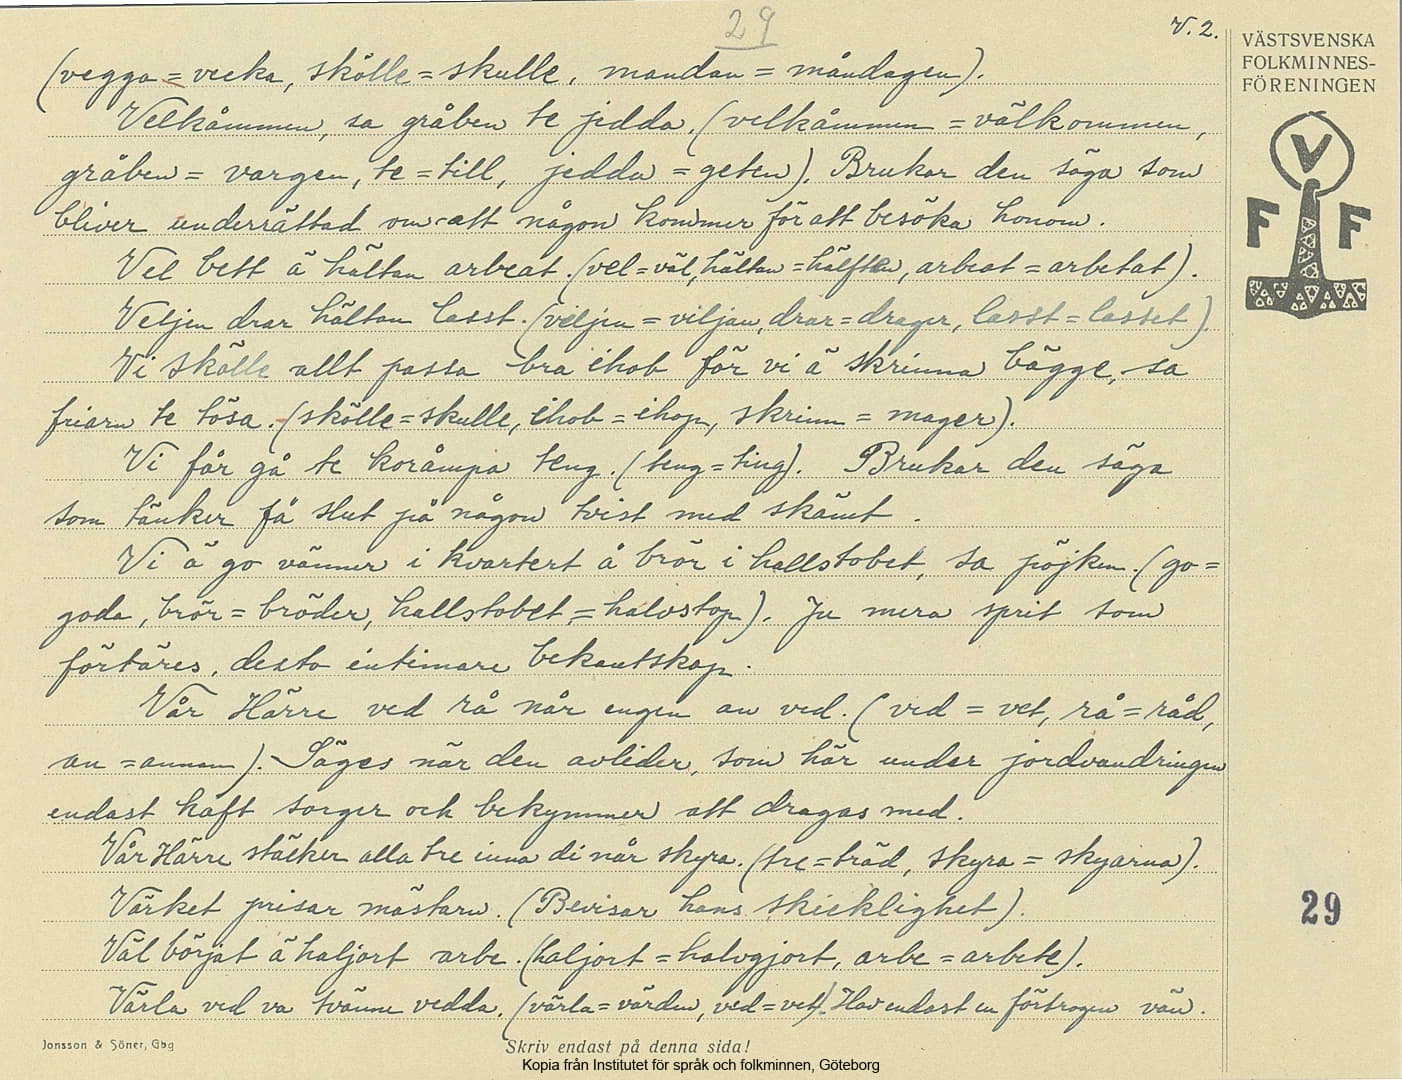 29
V. 2.
VÄSTSVENSKA
FOLKMINNES-
FÖRENINGEN
V
F F
(vegga = vecka, skölle = skulle, mandan = måndagen).
Velkåmmen, sa gråben te jedda. (velkåmmen = välkommen,
gråben = vargen, te = till, jedda = geten). Brukar den säga som
bliver underrättad om att någon kommer för att besöka honom.
Vel bett ä hältan arbeat. (vel = väl, hältan = hälften, arbeat = arbetat).
Veljen drar hältan lasst. (veljen = viljan, drar = drager, lasst = lasset).
Vi skölle allt passa bra ihob för vi ä skrinna bägge, sa
friarn te tösa. (skölle = skulle, ihob = ihop, skrinn = mager).
Vi får gå te koråmpa teng. (teng = ting). Brukar den säga
som tänker få slut på någon tvist med skämt.
Vi ä go vänner i kvartert å brör i hallstobet, sa pöjken. (go =
goda, brör = bröder, hallstobet = halvstop). Ju mera sprit som
förtäres, desto intimare bekantskap.
Vår Härre ved rå når engen an ved. (ved = vet, rå = råd,
an = annan). Säges när den avlider, som här under jordvandringen
endast haft sorger och bekymmer att dragas med.
Vår Härre stäcker alla tre inna di når skyra. (tre = träd, skyra = skyarna).
Värket prisar mästarn. (Bevisar hans skicklighet).
Väl börjat ä haljort arbe. (haljort = halvgjort, arbe = arbete).
Värla ved va tvänne vedda. (värla = värden, ved = vet). Hav endast en förtrogen vän.
29
Jonsson & Söner, Gbg
Skriv endast på denna sida!
Kopia från Institutet för språk och folkminnen, Göteborg